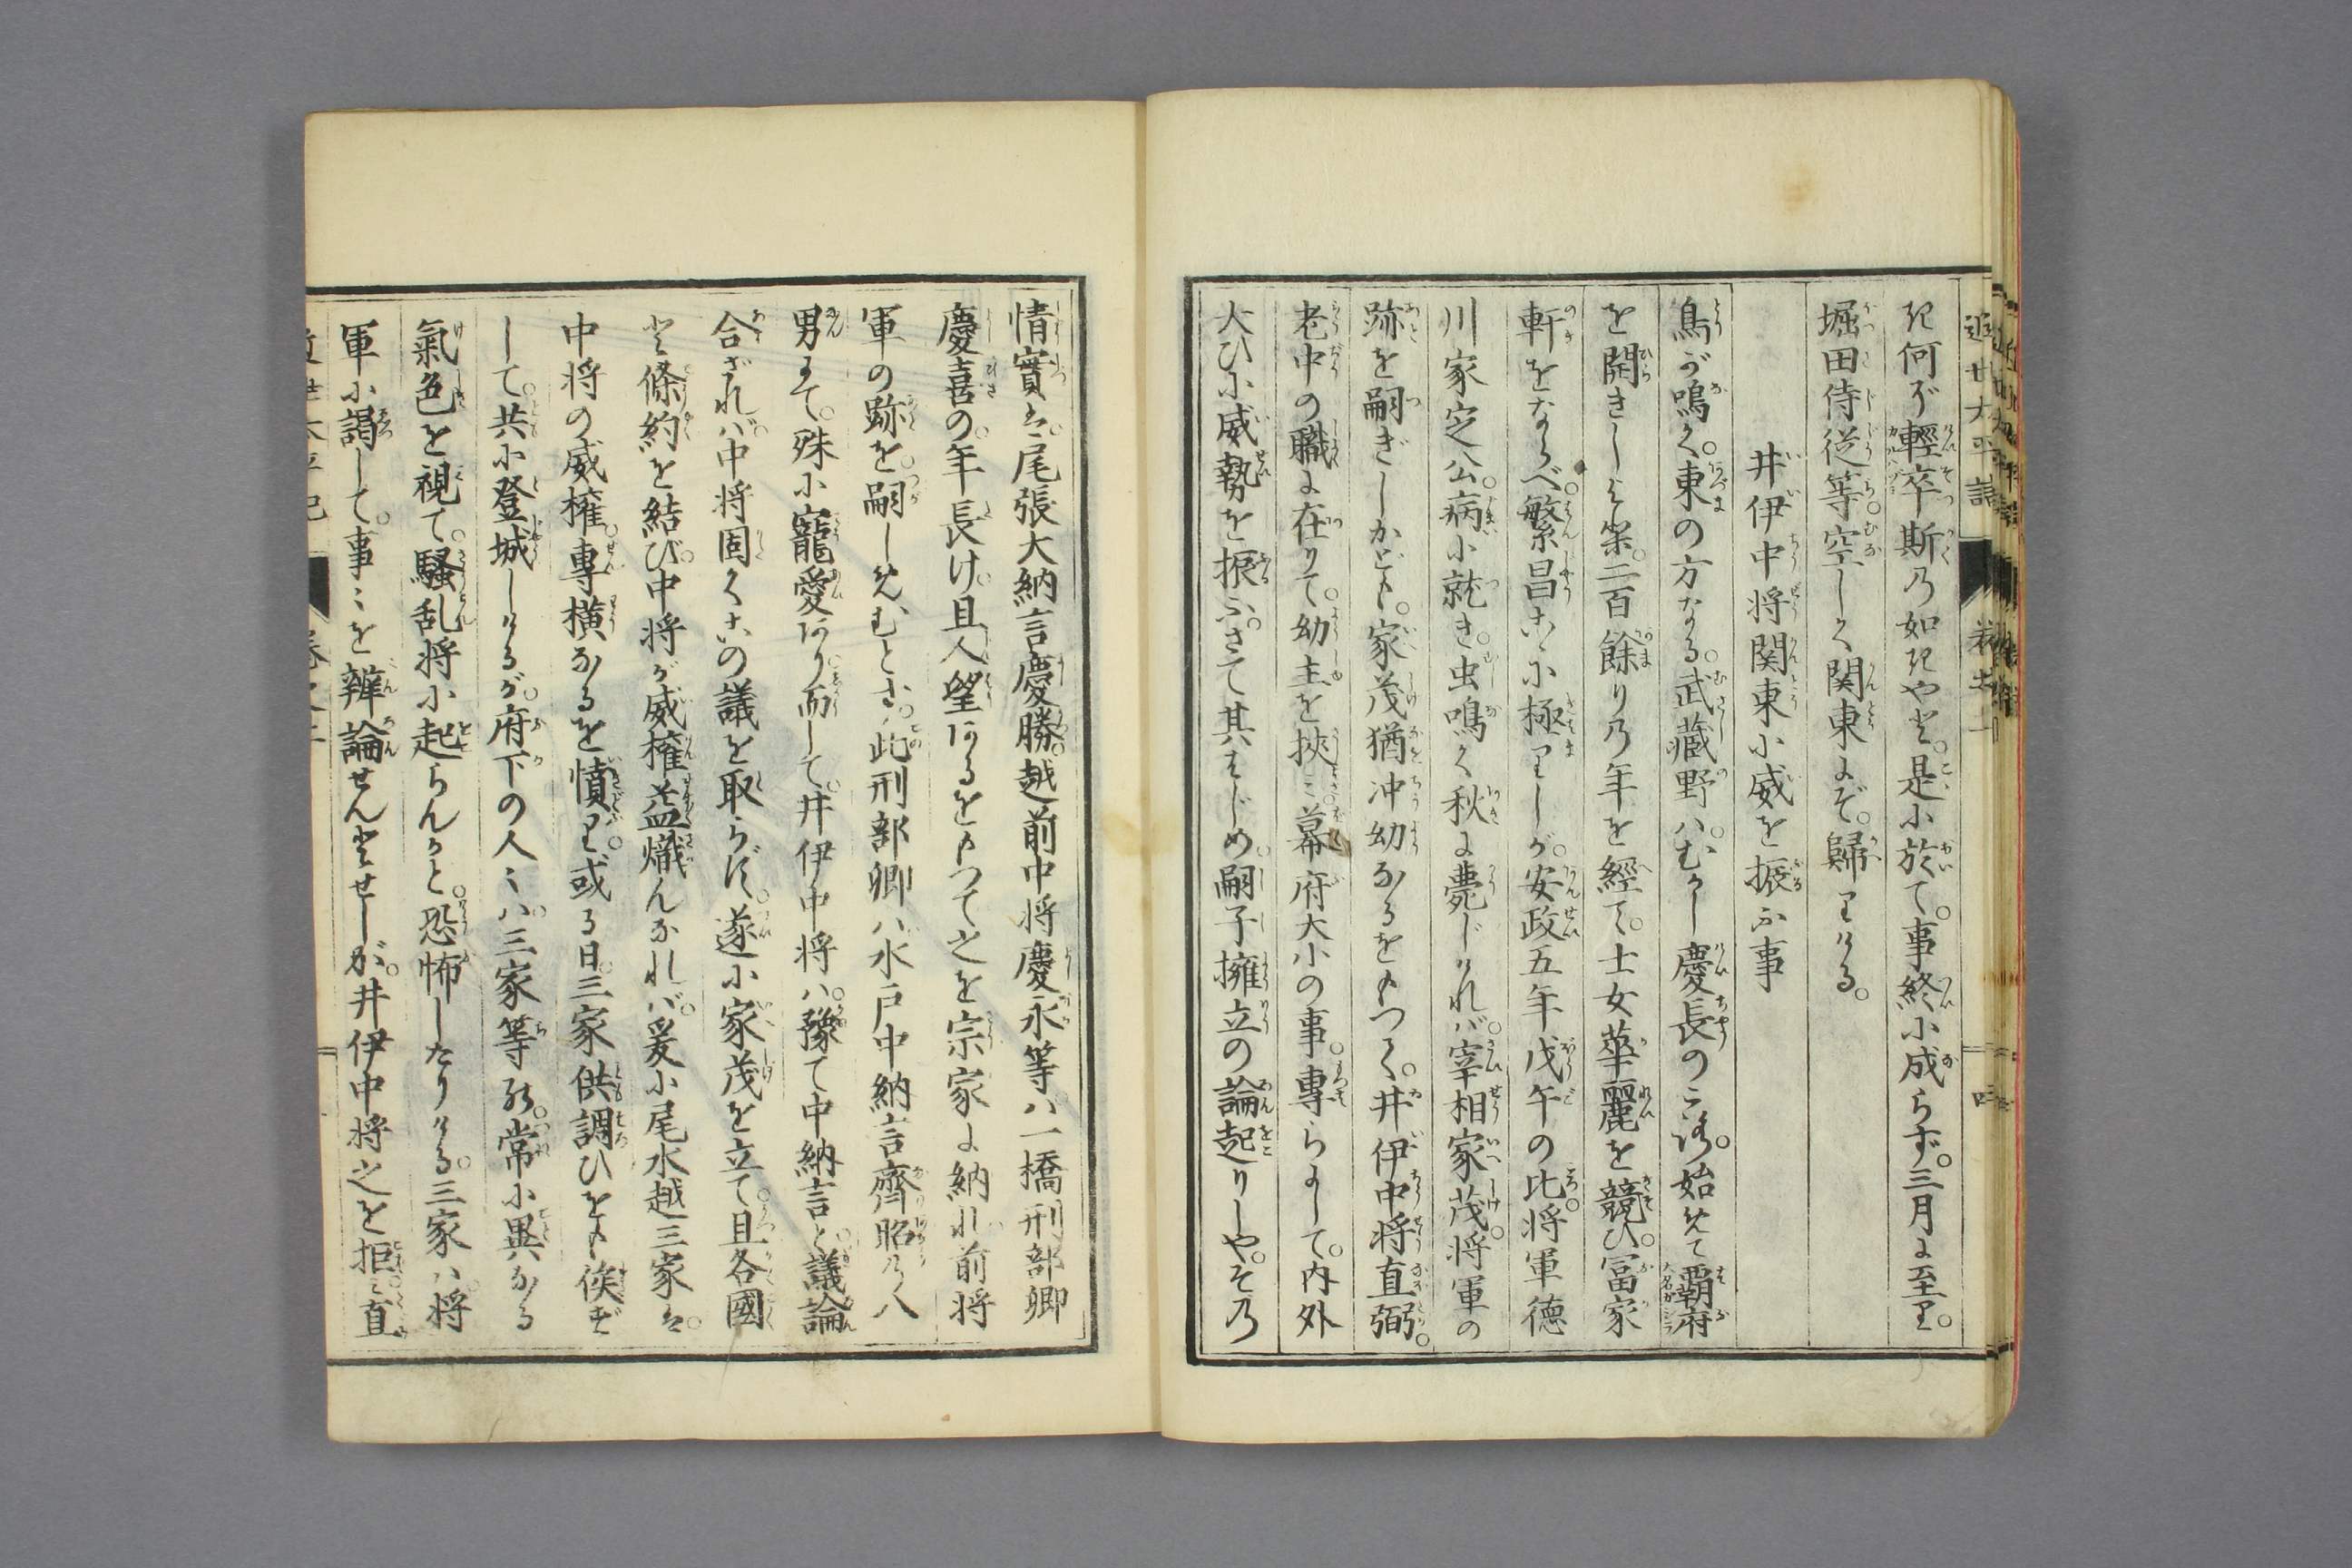 き何ぞ輕卒斯の如きやと。是に於て。事終に成らず。三月に至り。
堀田侍従等。空しく関東にぞ。歸りける。
井伊中将関東に威を振ふ事
鳥が鳴く。東の方なる。武蔵野ハ。むかし慶長のころ。始めて覇府
を開きしより。二百餘りの年を經て。士女華麗を競ひ。冨家
軒をならべ。繁昌こゝに極りしが。安政五年戊午の比。将軍徳
川家定公。病に就き。虫鳴く秋に薨じければ。宰相家茂。将軍の
跡を嗣ぎしかども。家茂猶冲幼なるをもつて。井伊中将直弼。
老中の職に在りて。幼主を挾ミ。幕府大小の事。專らにして。内外
大ひに威勢を振ふ。さて其はじめ。嗣子擁立の論起りしや。その
情實は。尾張大納言慶勝。越前中将慶永等ハ。一橋刑部卿
慶喜の。年長け。且人望あるをもつて之を宗家に納れ前将
軍の跡を。嗣しめむとす。此刑部卿ハ。水戸中納言齊昭の八
男にて。殊に寵愛あり。而して。井伊中将ハ。豫て中納言と。議論
合ざれバ。中将固くこの議を取らず。遂に家茂を立て。且各國
と條約を結び。中将が威權益熾んなれバ。爰に尾水越三家は。
中将の威權。專横なるを憤り。或る日。三家供調ひをも俟ず
して。共に登城しけるが。府下の人〻ハ。三家等の。常に異なる
氣色を視て。騒乱将に起らんかと。恐怖したりける。三家ハ。将
軍に謁して。事〻を辨論せんとせしが。井伊中将之を拒ミ直